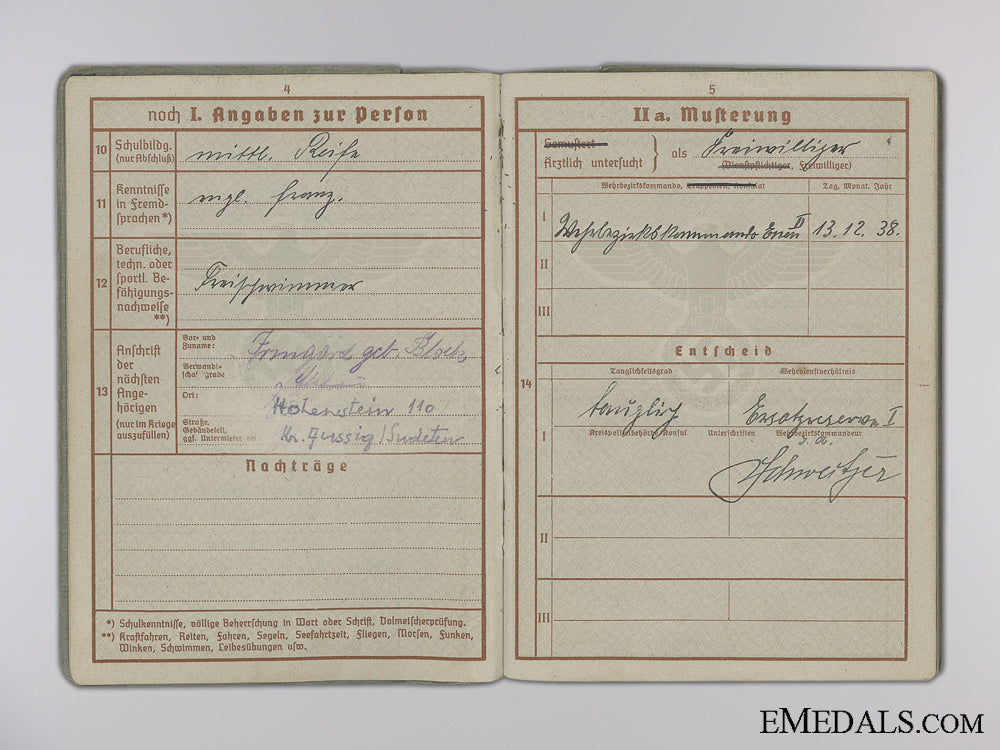 4
noch I. Angaben zur Person
10 Schulbildg. (nur Abschluß) mittl. Reife
11 Kenntnisse in Fremdsprachen *) engl. franz.
12 Berufliche, techn. oder sportl. Befähigungsnachweise **) Freischwimmer
13 Anschrift der nächsten Angehörigen (nur im Kriege auszufüllen)
Vor- und Zuname: Irmgard geb.
Verwandtschaftsgrade
Ort: Hohenstein 110
Straße, Gebäudeteil, ggf. Untermieter bei Kr. Aussig/Sudeten
Nachträge
*) Schulkenntnisse, völlige Beherrschung in Wort oder Schrift, Dolmetscherprüfung.
**) Kraftfahren, Reiten, Fahren, Segeln, Seefahrtzeit, Fliegen, Morsen, Funken,
Winken, Schwimmen, Leibesübungen usw.
5
II a. Musterung
Gemustert
Ärztlich untersucht } als Freiwilliger
(Dienstpflichtiger, Freiwilliger)
Wehrbezirkskommando, Truppenteil, Konsulat Tag, Monat, Jahr
I Wehrbezirkskommando Essen II 13.12.38.
II
III
Entscheid
14
Tauglichkeitsgrad Wehrdienstverhältnis
I tauglich Ersatzreserve I
Kreispolizeibehörde/Konsul Unterschriften Wehrbezirkskommandeur
Schweitzer
II
III
eMedals.com